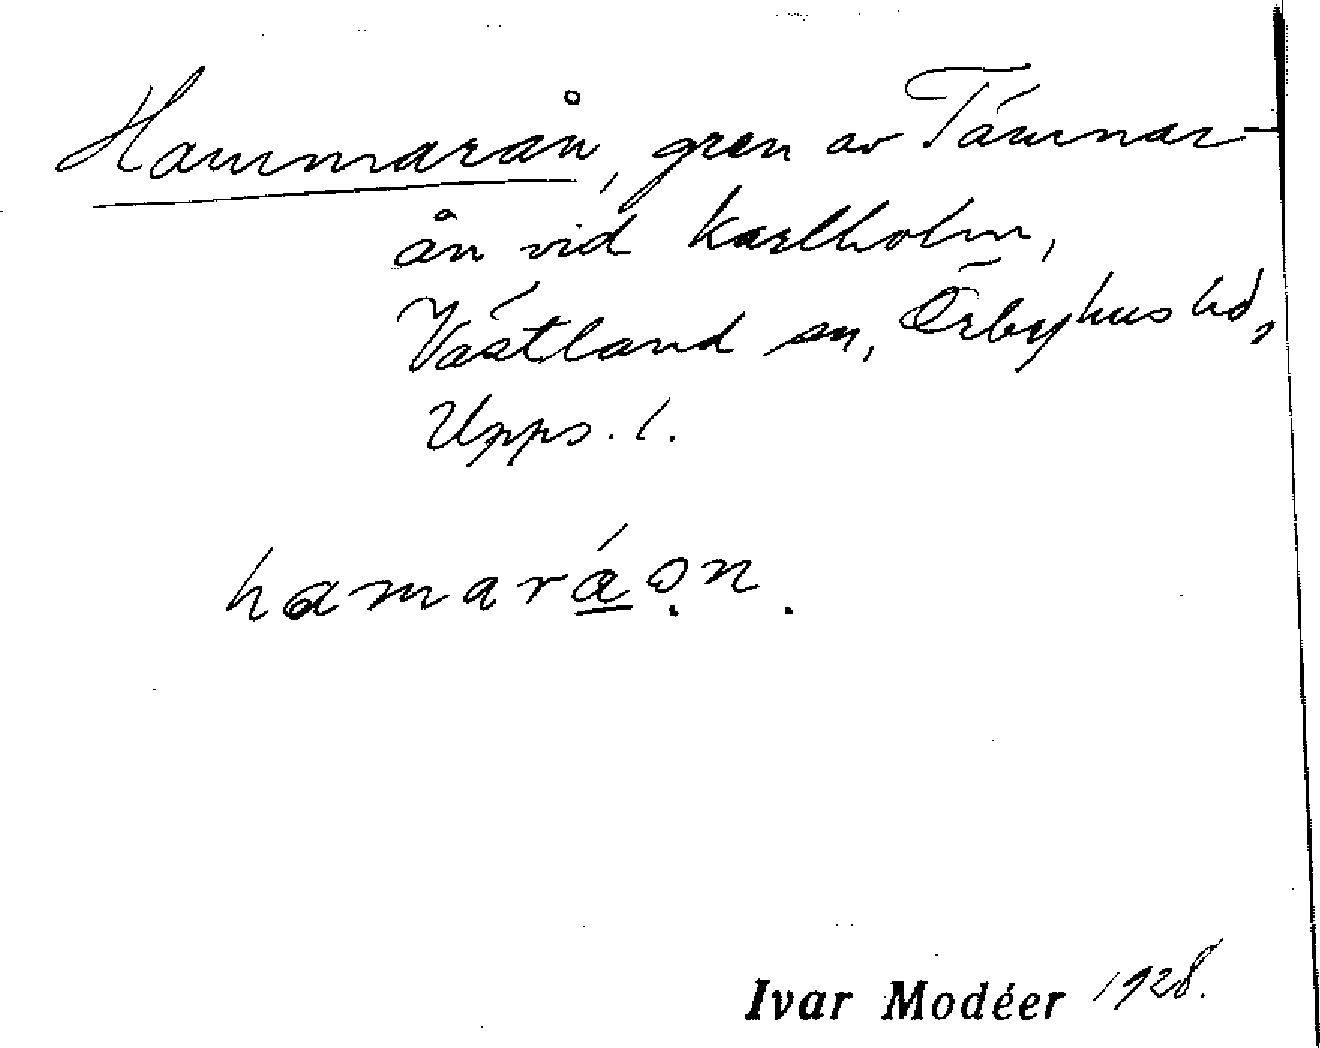 Hammarån, gren av Tämnar-
ån vid Karlholm,
Västland sn, Örbyhus hd,
Upps. l.
hamaráɔ̣n.
Ivar Modéer 1928.